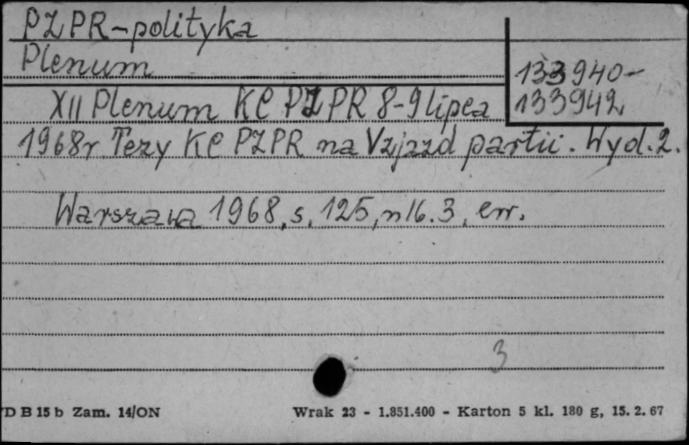 PZPR-polityka
Plenum
133940-
133942
XII Plenum KC PZPR 8-9 lipca
1968r Tezy KC PZPR na V zjazd partii. Wyd. 2.
Warszawa 1968, s. 125, nlb. 3, err.
3
D B 15 b Zam. 14/ON
Wrak 23 - 1.851.400 - Karton 5 kl. 180 g, 15. 2. 67